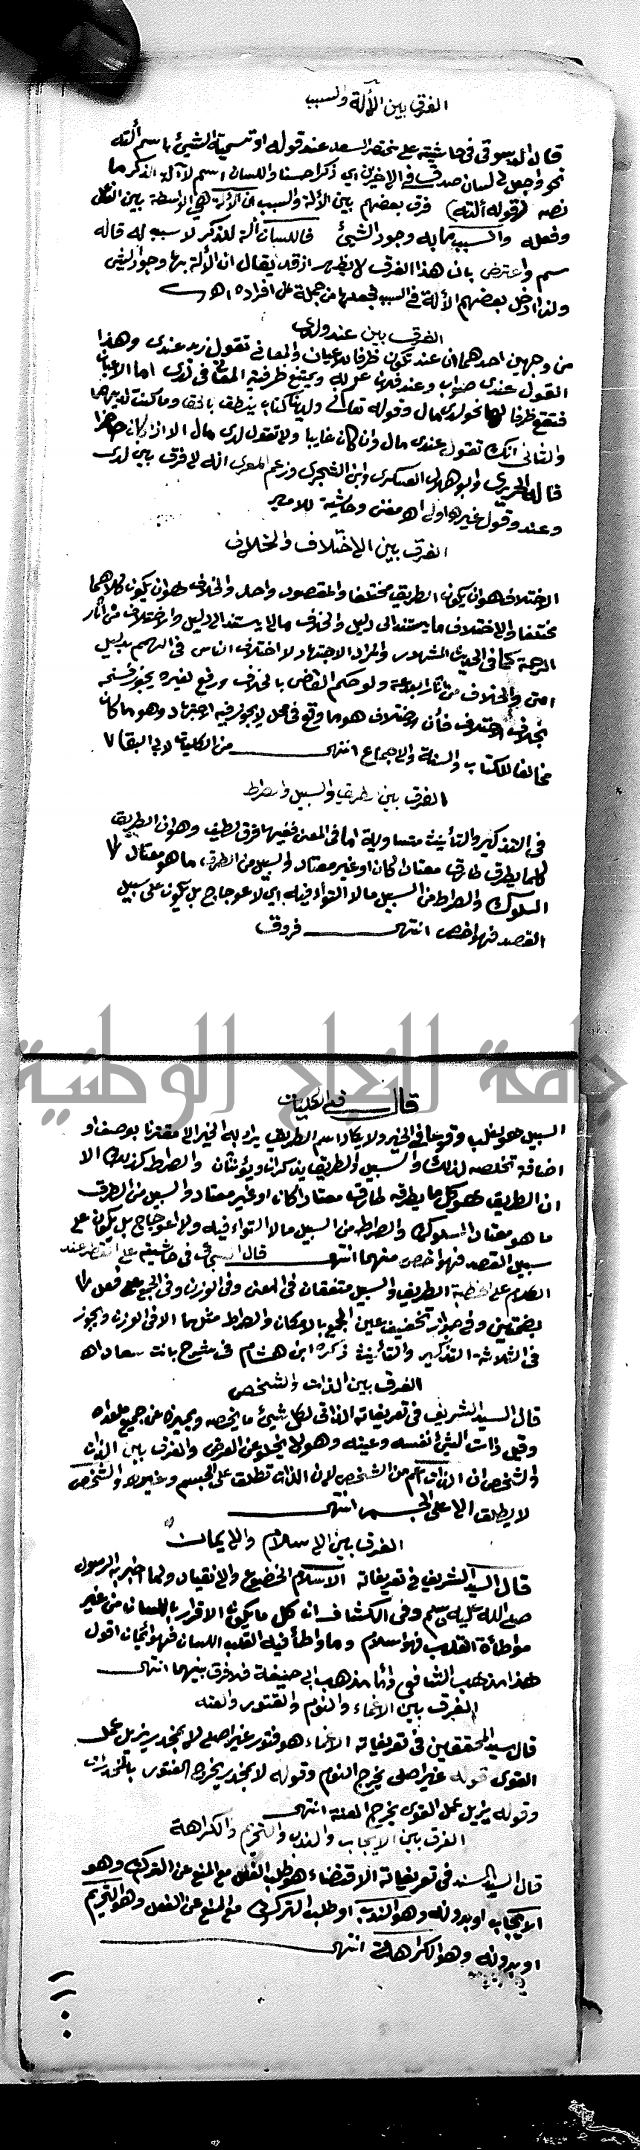 الفرق بين الآلة والسبب
قال الدسوقي في حاشيته على مختصر السعد عند قوله او تسمية الشيء باسم آلته
نحو واجعل لي لسان صدق في الآخرين اي ذكرا حسنا واللسان اسم لآلة الذكر ما
نصه (قوله آلته) فرق بعضهم بين الآلة والسبب بان الآلة هي الواسطة بين الفاعل
وفعله والسبب ما به وجود الشيء فاللسان آلة للذكر لا سبب له قاله
سم واعترض بان هذا الفرق لا يظهر اذ قد يقال ان الآلة بها وجود الشيء
ولذا ادخل بعضهم الآلة في السبب فجعلها من جملة افراده اهـ
الفرق بين عند ولدى
من وجهين احدهما ان عند تكون ظرفا للاعيان والمعاني تقول زيد عندي وهذا
القول عندي صواب وعند فلان علم به ويمتنع ظرفية المعاني في لدى اما الاعيان
فتقع ظرفا لها نحو لدي مال وقوله تعالى ولدينا كتاب ينطق بالحق وما كنت لديهم
والثاني انك تقول عندي مال وان كان غايبا ولا تقول لدي مال الا اذا كان حاضرا
قاله الحريري وابو هلال العسكري وابن الشجري وزعم المعري انه لا فرق بين لدى
وعند وقول غيره اولى اهـ مغني وحاشية للامير
الفرق بين الاختلاف والخلاف
الاختلاف هو ان يكون الطريق مختلفا والمقصود واحد والخلاف هو ان يكون كلاهما
مختلفا والاختلاف ما يستند الى دليل والخلاف ما لا يستند الى دليل والاختلاف من آثار
الرحمة كما في الحديث المشهور والمراد الاجتهاد لا اختلاف الناس في الهمم بدليل
امتي والخلاف من آثار البدعة ولو حكم القاضي بالخلاف ورفع لغيره يجوز فسخه
بخلاف الاختلاف فان الخلاف هو ما وقع في محل لا يجوز فيه الاجتهاد وهو ما كان
مخالفا للكتاب والسنة والاجماع انتهى من الكليات لابي البقا
الفرق بين الطريق والسبيل والصراط
في التذكير والتأنيث متساوية اما في المعنى ففيها فرق لطيف وهو ان الطريق
كلما يطرق طارق معتادا كان او غير معتاد والسبيل من الطرق ما هو معتاد
السلوك والصراط من السبيل ما لا التواء فيه اي لا اعوجاج بل يكون على سبيل
القصد فهو اخص انتهى فروق
قال في الكليات
السبيل هو اغلب وقوعا في الخير ولا يكاد اسم الطريق يراد به الخير الا مقترنا بوصف او
اضافة تخلصه لذلك والسبيل والطريق يذكران ويؤنثان والصراط كذلك الا
ان الطريق هو كل ما يطرقه طارق معتادا كان او غير معتاد والسبيل من الطرق
ما هو معتاد السلوك والصراط من السبيل ما لا التواء فيه ولا اعوجاج بل يكون على
سبيل القصد فهو اخص منهما انتهى قال في حاشيته على القطر عند
الكلام على الخطبة الطريق والسبيل متفقان في المعنى وفي الوزن وفي الجمع على فعل
بضمتين وفي جواز تخفيف عين الجمع بالاسكان والصراط مثلهما الا في الوزن ويجوز
في الثلاثة التذكير والتأنيث ذكره ابن هشام في شرح بانت سعاد اهـ
الفرق بين الذات والشخص
قال السيد الشريف في تعريفاته الذاتي لكل شيء ما يخصه ويميزه عن جميع ما عداه
وقيل ذات الشيء نفسه وعينه وهو لا يخلو عن العرض والفرق بين الذات
والشخص ان الذات اعم من الشخص لان الذات تطلق على الجسم وغيره والشخص
لا يطلق الا على الجسم انتهى
الفرق بين الاسلام والايمان
قال السيد الشريف في تعريفاته الاسلام الخضوع والانقياد ولما اخبر به الرسول
صلى الله عليه وسلم وفي الكشاف ان كل ما يكون الاقرار باللسان من غير
مواطأة القلب فهو اسلام وما واطأ فيه القلب اللسان فهو ايمان اقول
هذا مذهب الشافعي واما مذهب ابي حنيفة فلا فرق بينهما انتهى
الفرق بين الاغماء والنوم والفتور والعته
قال سيد المحققين في تعريفاته الاغماء هو فتور غير اصلي لا بمخدر يزيل عمل
القوى قوله غير اصلي يخرج النوم وقوله لا بمخدر يخرج الفتور بالمخدرات
وقوله يزيل عمل القوى يخرج العته انتهى
الفرق بين الايجاب والندب والتحريم والكراهة
قال السيد السند في تعريفاته الاقتضاء هو طلب الفعل مع المنع عن الترك وهو
الايجاب او بدونه وهو الندب او طلب الترك مع المنع عن الفعل وهو التحريم
او بدونه وهو الكراهة انتهى
جامعة النجاح الوطنية